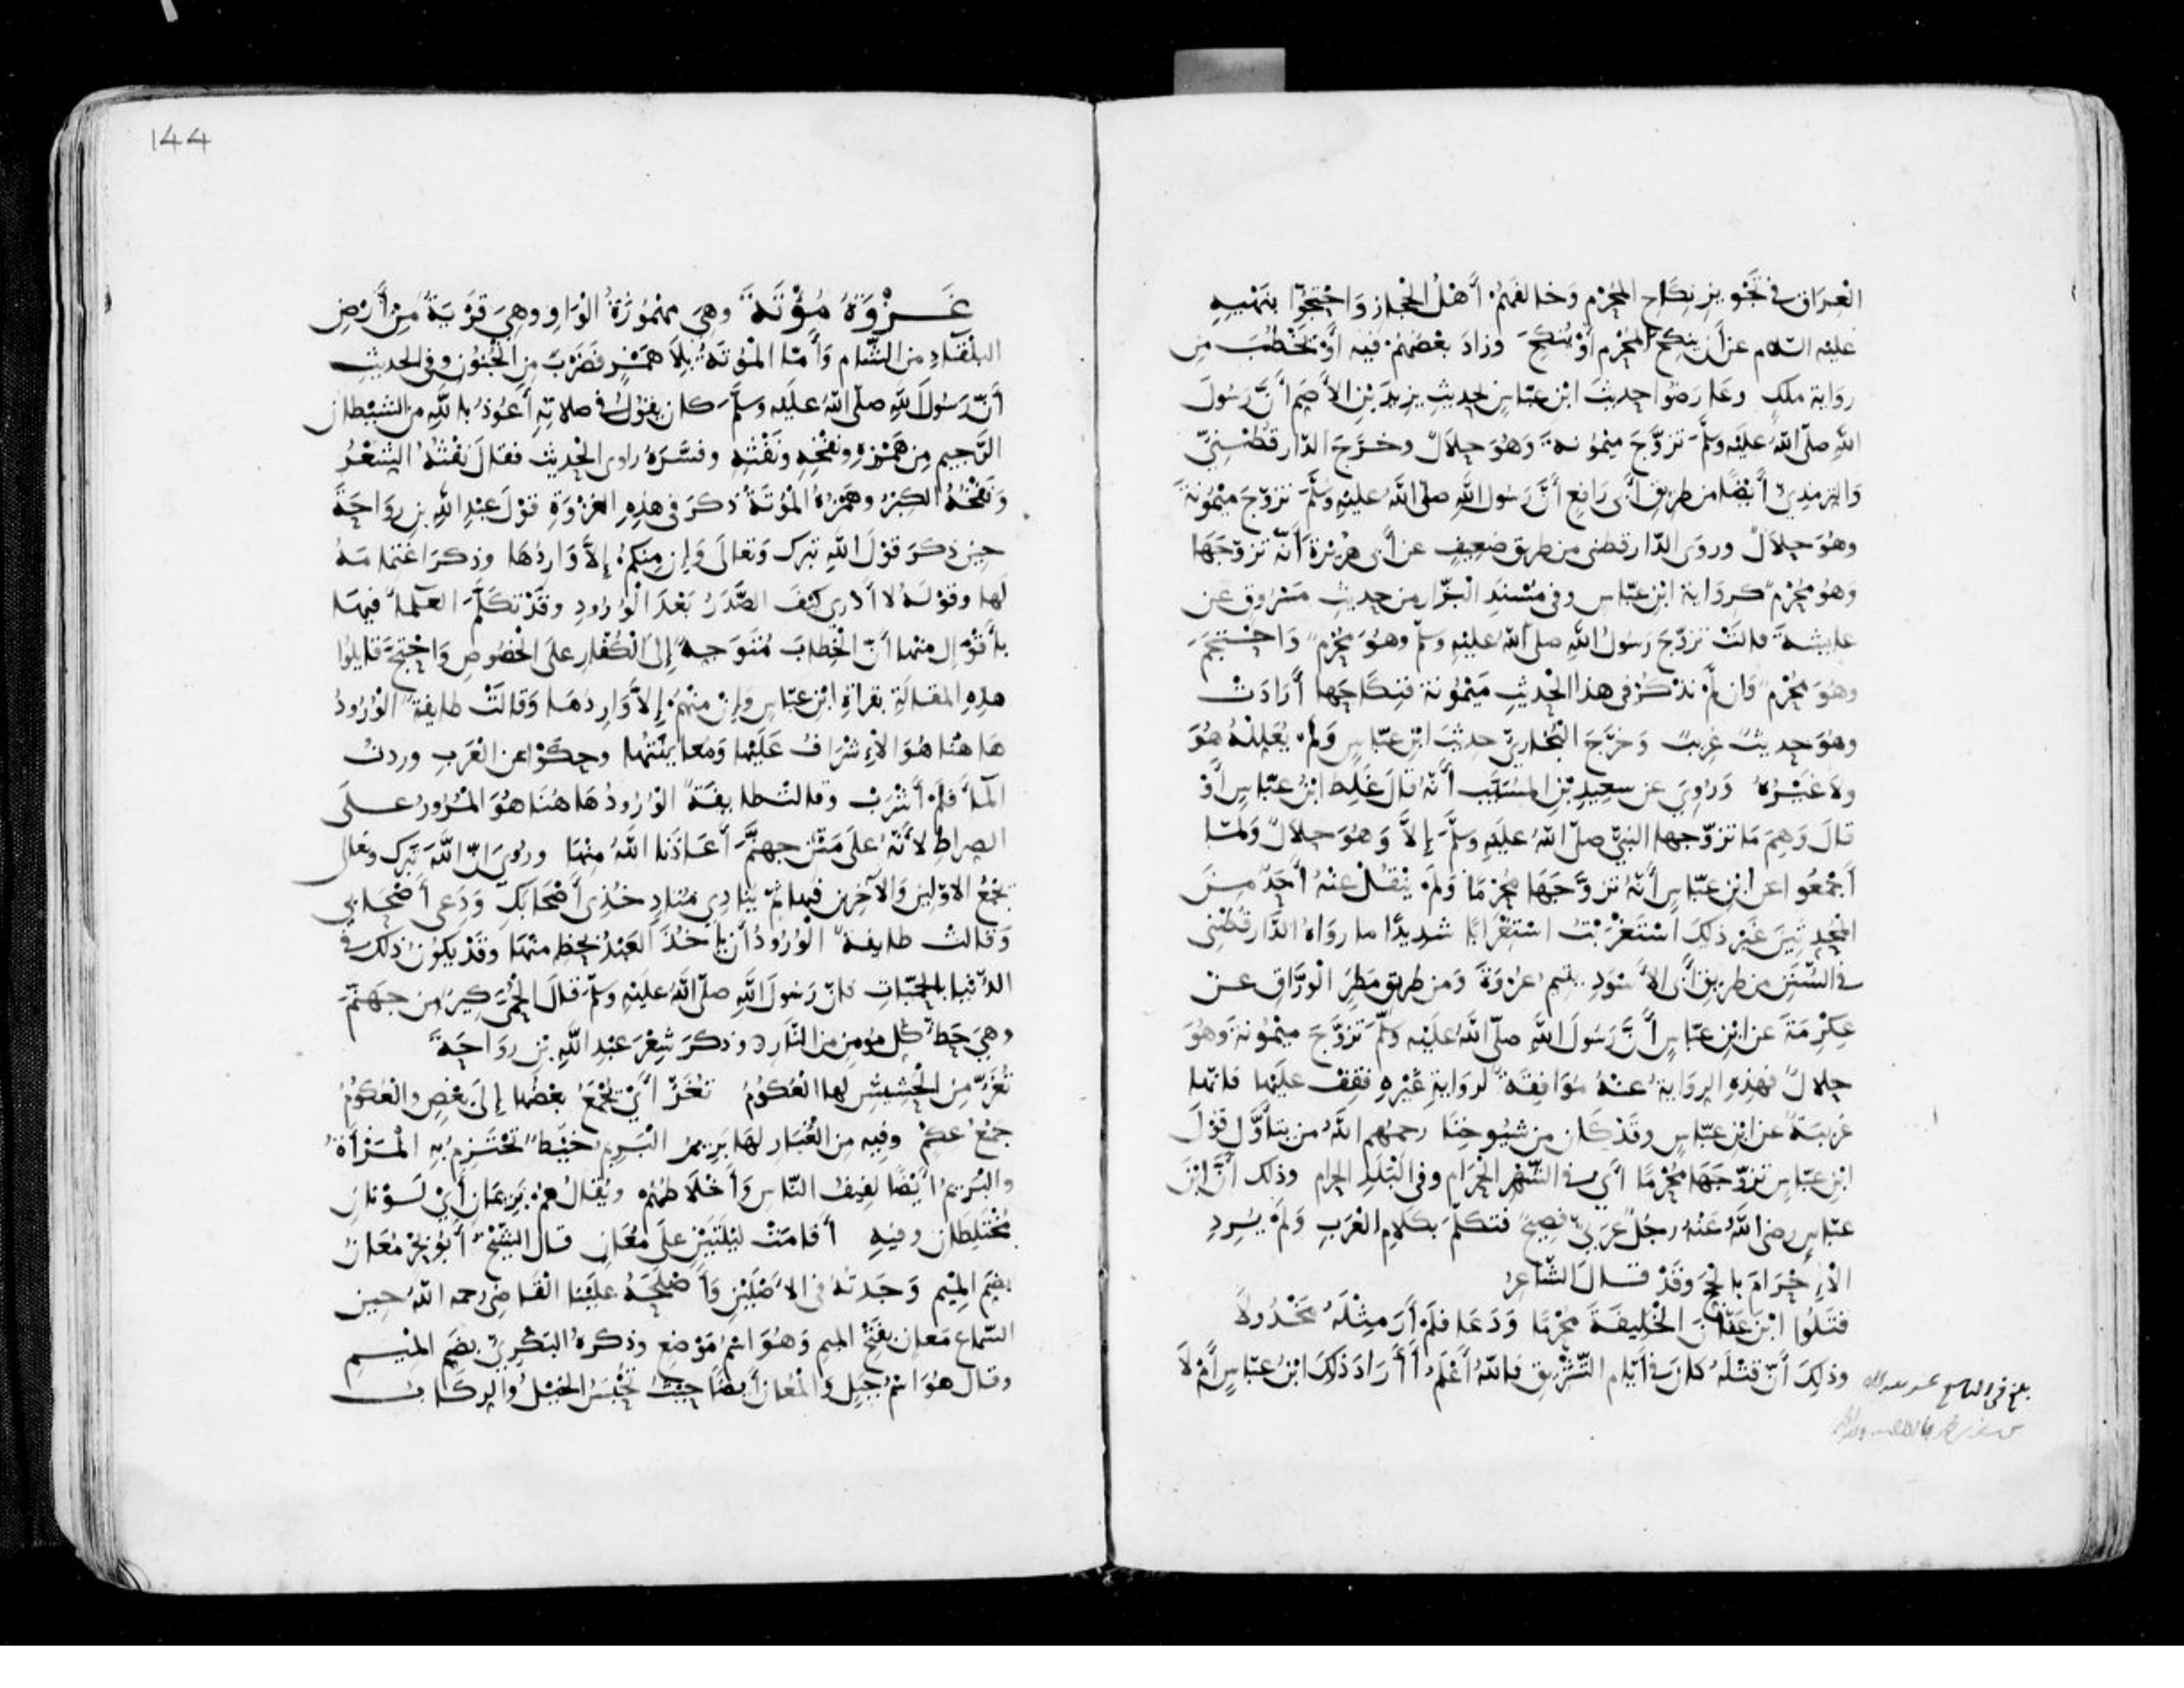 العراق في تجويز نكاح المحرم وخالفهم أهل الحجاز واحتجوا بنهيه
عليه السلام عن أن ينكح المحرم أو ينكح وزاد بعضهم فيه أو يخطب من
رواية ملك وعارضوا حديث ابن عباس بحديث يزيد بن الأصم أن رسول
الله صلى الله عليه وسلم تزوج ميمونة وهو حلال وخرج الدارقطني
والترمذي أيضا من طريق أبي رافع أن رسول الله صلى الله عليه وسلم تزوج ميمونة
وهو حلال وروى الدارقطني من طريق ضعيف عن أبي هريرة أنه تزوجها
وهو محرم كرواية ابن عباس وفي مسند البزار من حديث مسروق عن
عايشة قالت تزوج رسول الله صلى الله عليه وسلم وهو محرم واحتجم
وهو محرم وان لم تذكر في هذا الحديث ميمونة فنكاحها أرادت
وهو حديث غريب وخرج البخاري حديث ابن عباس ولم يعلله هو
ولا غيره وروي عن سعيد بن المسيب أنه قال غلط ابن عباس أو
قال وهم ما تزوجها النبي صلى الله عليه وسلم إلا وهو حلال ولما
أجمعوا عن ابن عباس أنه تزوجها محرما ولم ينقل عنه أحد من
المحدثين غير ذلك استغربت استغرابا شديدا ما رواه الدارقطني
في السنن من طريق أبي الأسود يتيم عروة ومن طريق مطر الوراق عن
عكرمة عن ابن عباس أن رسول الله صلى الله عليه وسلم تزوج ميمونة وهو
حلال فهذه الرواية عنه موافقة لرواية غيره فقف عليها فانها
غريبة عن ابن عباس وقد كان من شيوخنا رحمهم الله من يتأول قول
ابن عباس تزوجها محرما أي في الشهر الحرام وفي البلد الحرام وذلك أن ابن
عباس رضي الله عنه رجل عربي فصيح فتكلم بكلام العرب ولم يرد
الإحرام بالحج وقد قال الشاعر
قتلوا ابن عفان الخليفة محرما ودعا فلم أر مثله مخذولا
وذلك أن قتله كان في أيام التشريق فالله أعلم أأراد ذلك ابن عباس أم لا
غزوة مؤتة وهي مهموزة الواو وهي قرية من أرض
البلقاء من الشام وأما الموتة بلا همز فضرب من الجنون وفي الحديث
أن رسول الله صلى الله عليه وسلم كان يقول في صلاته أعوذ بالله من الشيطان
الرجيم من همزه ونفخه ونفثه وفسره راوي الحديث فقال نفثه الشعر
ونفخه الكبر وهمزه الموتة ذكر في هذه الغزوة قول عبد الله بن رواحة
حين ذكر قول الله تبرك وتعالى وإن منكم إلا واردها وذكر
لها وقوله لا أدري كيف الصدر بعد الورود وقد تكلم العلماء فيها
بأقوال منها أن الخطاب متوجه إلى الكفار على الخصوص واحتج قايلوا
هذه المقالة بقراة ابن عباس وإن منهم إلا واردها وقالت طايفة الورود
هاهنا هو الإشراف عليها ومعاينتها وحكوا عن العرب وردت
الماء فلم أشرب وقالت طايفة الورود هاهنا هو المرور على
الصراط لأنه على متن جهنم أعاذنا الله منها وروي ان الله تبرك وتعالى
يجمع الاولين والآخرين فيها ثم ينادي مناد خذي أصحابك ودعي أصحابي
وقالت طايفة الورود أن يأخذ العبد بحظ منها وقد يكون ذلك في
الدنيا بالحميات فان رسول الله صلى الله عليه وسلم قال الحمى كير من جهنم
وهي حظ كل مؤمن من النار وذكر شعر عبد الله بن رواحة
تغر من الحشيش لها العكوم تغر أي يجمع بعضها إلى بعض والعكوم
جمع عكم وفيه من الغبار لها بريم البريم خيط تحتزم به المرأة
والبريم أيضا لفيف الناس وأخلاطهم ويقال هم بريمان أي لونان
مختلطان وفيه أقامت ليلتين على معان قال الشيخ أبو بحر معان
بضم الميم وجدته في الاصلين وأصلحه علينا القاضي رحمه الله حين
السماع معان بفتح الميم وهو اسم موضع وذكره البكري بضم الميم
وقال هو اسم جبل والمعان أيضا حيث تحبس الخيل والركاب
144